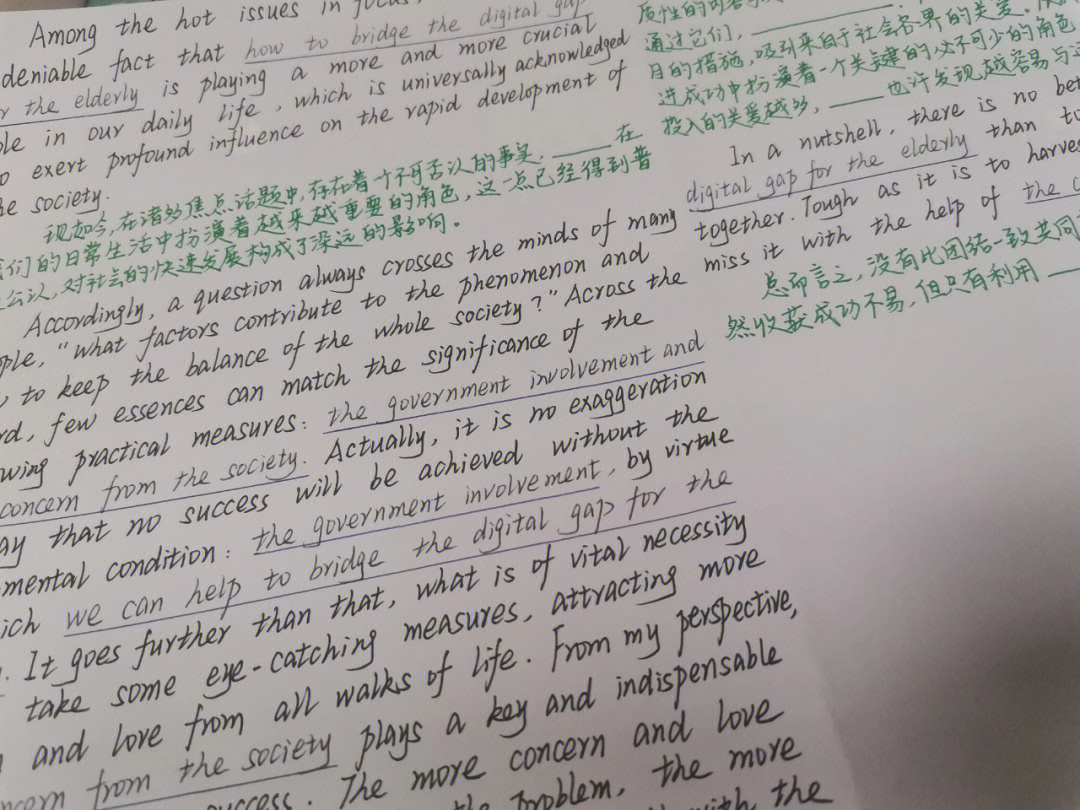 Among the hot issues in
deniable fact that how to bridge the digital gap
the elderly is playing a more and more crucial
in our daily life, which is universally acknowledged
exert profound influence on the rapid development of
society.
现如今,在诸多焦点话题中,存在着一个不可否认的事实,____在
们的日常生活中扮演着越来越重要的角色,这一点已经得到普
公认,对社会的快速发展构成了深远的影响。
Accordingly, a question always crosses the minds of many
ple, "What factors contribute to the phenomenon and
to keep the balance of the whole society?" Across the
few essences can match the significance of the
wing practical measures: the government involvement and
concern from the society. Actually, it is no exaggeration
ay that no success will be achieved without the
mental condition: the government involvement, by virtue
ich we can help to bridge the digital gap for the
. It goes further than that, what is of vital necessity
take some eye-catching measures, attracting more
and love from all walks of life. From my perspective,
ncern from the society plays a key and indispensable
success. The more concern and love
problem, the more
with the
通过它们,____
目的措施,吸引来自于社会各界的关爱。
进成功中扮演着一个关键的,必不可少的角色
投入的关爱越多,____也许发现越容易与
In a nutshell, there is no
digital gap for the elderly than to
together. Tough as it is to harves
miss it with the help of the
总而言之,没有比团结一致共同
然收获成功不易,但只有利用____